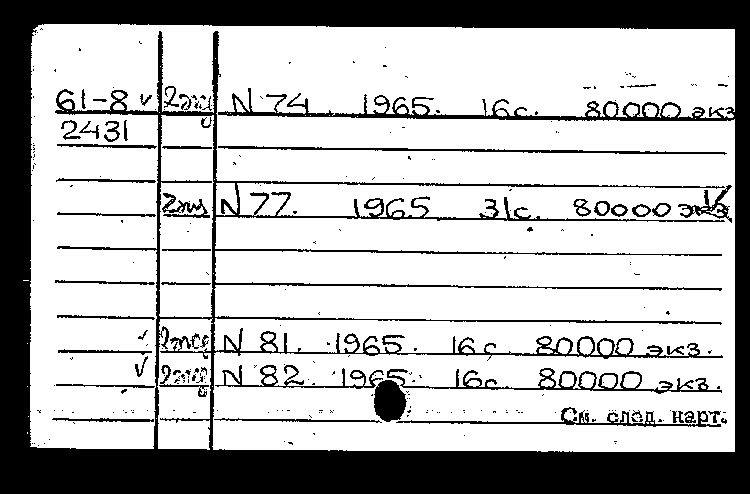 61-8 2экз N 74 1965. 16с. 80000 экз
2431
2экз N 77. 1965 31с. 80000 экз
N 81. 1965. 16с 80000 экз.
N 82. 1965. 16с. 80000 экз.
См. след. карт.